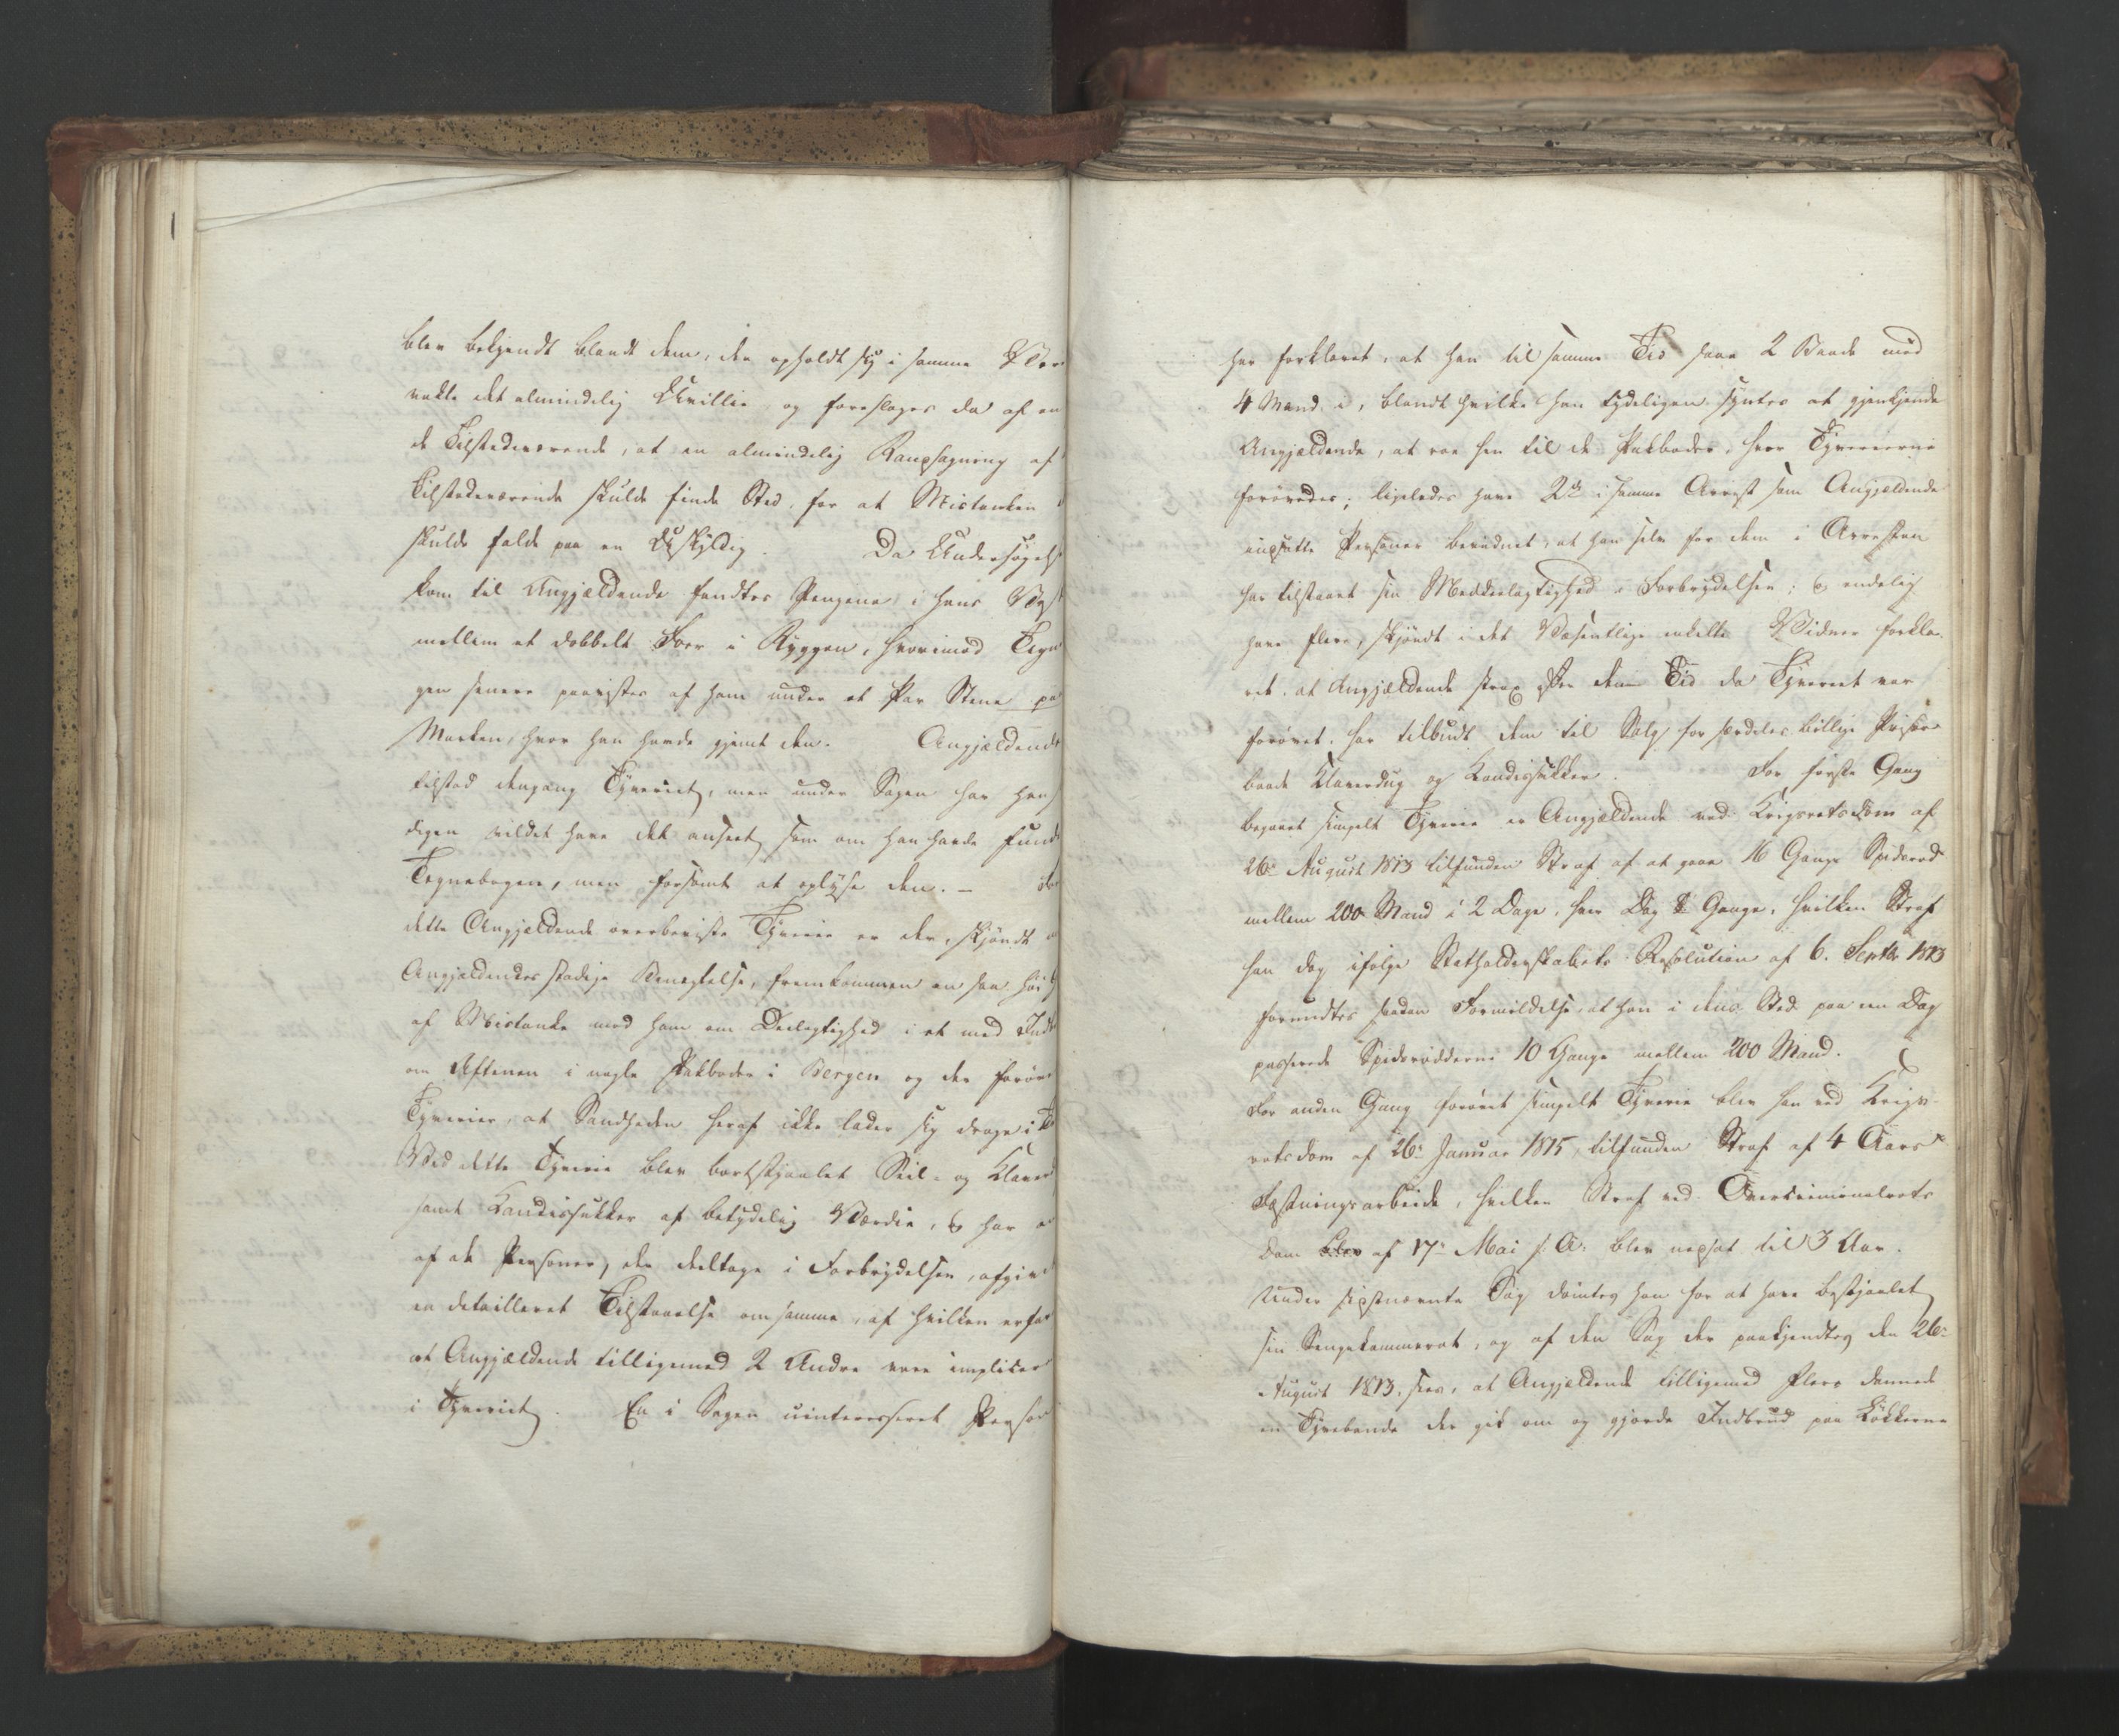 blev bekjendt blandt dem, der opholdt sig i samme Vær
vakte det almindelig Uvillie, og foresloges da af en
de Tilstedeværende, at en almindelig Ransagning af
Tilstedeværende skulde finde Sted, for at Mistanken
skulde falde paa en Uskyldig. Da Undersøgels
kom til Angjældende fandtes Pengene i hans Vest
mellem et dobbelt Foer i Ryggen, hvorimod Tegn
gen senere paavistes af ham under et Par Stene paa
Marken, hvor han havde gjemt den. Angjældende
tilstod dengang Tyveriet, men under Sagen har han
digen villet have det anseet som om han havde funde
Tegnebogen, men forsømt at oplyse den. – For
dette Angjældende overbeviste Tyverie er der, skjøndt
Angjældendes stadige Benægtelse, fremkommen en saa høi
af Mistanke mod ham om Deelagtighed i et med Indb
om Aftenen i nogle Pakboder i Bergen og der forøv
Tyverier, at Sandheden heraf ikke lader sig drage i T
Ved dette Tyverie blev bortstjaalet Seil- og Klaver
samt Kandissukker af betydelig Værdie, & har
af de Personer, der deeltoge i Forbrydelsen, afgivet
en detailleret Tilstaaelse om samme, af hvilken erfar
at Angjældende tilligemed 2 Andre vare implicer
i Tyveriet. En i Sagen uinteresseret Person
har forklaret, at han til samme Tid saae 2 Baade med
4 Mand i, blandt hvilke han tydeligen syntes at gjenkjende
Angjældende, at roe hen til de Pakboder, hvor Tyverierne
forøvedes; ligeledes have 2de i samme Arrest som Angjældende
insatte Personer bevidnet, at han selv for dem i Arresten
har tilstaaet sin Meddeelagtighed i Forbrydelsen; & endelig
have flere, skjøndt i det Væsentlige enkelte Vidner forkla-
ret, at Angjældende strax efter den Tid da Tyveriet var
forøvet, har tilbudt dem til Salg for særdeles billige Priser
baade Klaverdug og Kandissukker. For første Gang
begaaet simpelt Tyverie er Angjældende ved Krigsretsdom af
26de August 1813 tilfunden Straf af at gaae 16 Gange Spidsrod
mellem 200 Mand i 2 Dage, hver Dag 8 Gange, hvilken Straf
han dog ifølge Statholderskabets Resolution af 6. Septbr 1813
forundtes saadan Formildelse, at han i dens Sted paa een Dag
passerede Spidsrødderne 10 Gange mellem 200 Mand.
For anden Gang forøvet simpelt Tyverie blev han ved Krigs-
retsdom af 26de Januar 1815, tilfunden Straf af 4 Aars
Fæstningsarbeide, hvilken Straf ved Overkriminalrets
Dom blev af 17de Mai s. A. blev nedsat til 3 Aar.
Under sidstnævnte Sag dømtes han for at have bestjaalet
sin Sengekammerat, og af den Sag der paakjendtes den 26de
August 1813, sees, at Angjældende tilligemed flere dannede
en Tyvebande der gik om og gjorde Indbrud paa Løkkerne